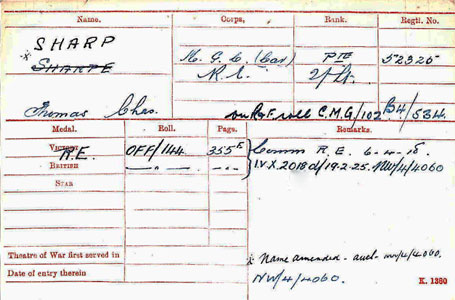 Name. Corps. Rank. Regtl. No.
x SHARP
SHARPE
M. G. C. (Cav) Pte 52325
R.E. 2/Lt.
Thomas Chas. on R.E. roll C.M.G/102 B4/534
Medal. Roll. Page. Remarks.
VICTORY R.E. OFF/144 355
BRITISH — " — — " —
STAR
Comm R.E. 6-4-18.
I.V.X. 2018d/19-2-25. NW/4/4060
Theatre of War first served in
Date of entry therein
x Name amended - auth - NW/4/4060.
NW/4/4060.
K. 1380